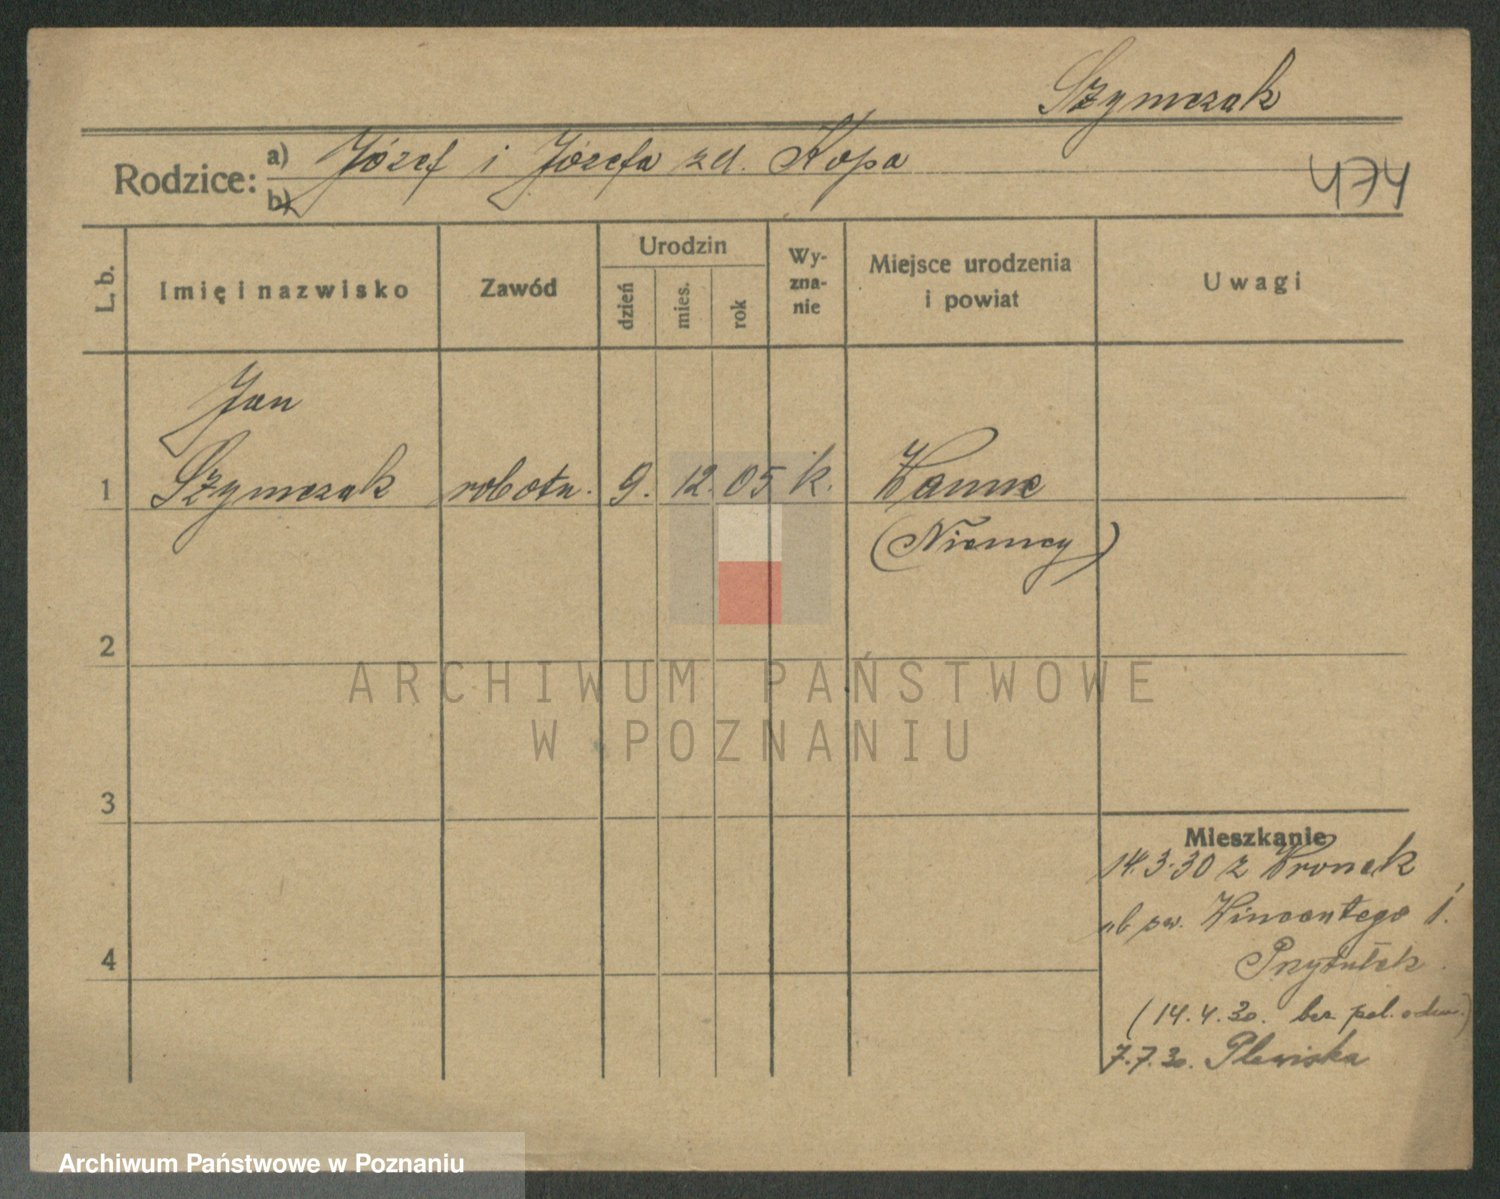 Szymczak
Rodzice:
a) Józef i Józefa zd. Kopa
b)
474
L. b.
Imię i nazwisko
Zawód
Urodzin
dzień
mies.
rok
Wy-
zna-
nie
Miejsce urodzenia
i powiat
Uwagi
Jan
1 Szymczak robotn. 9. 12. 05 k. Wanne
(Niemcy)
2
3
4
Mieszkanie
14.3.30 z Wronek
Wincentego 1.
Przytułek
(14.4.30. bez pol. odm.)
7.7.30. Plewiska
ARCHIWUM PAŃSTWOWE
W POZNANIU
Archiwum Państwowe w Poznaniu